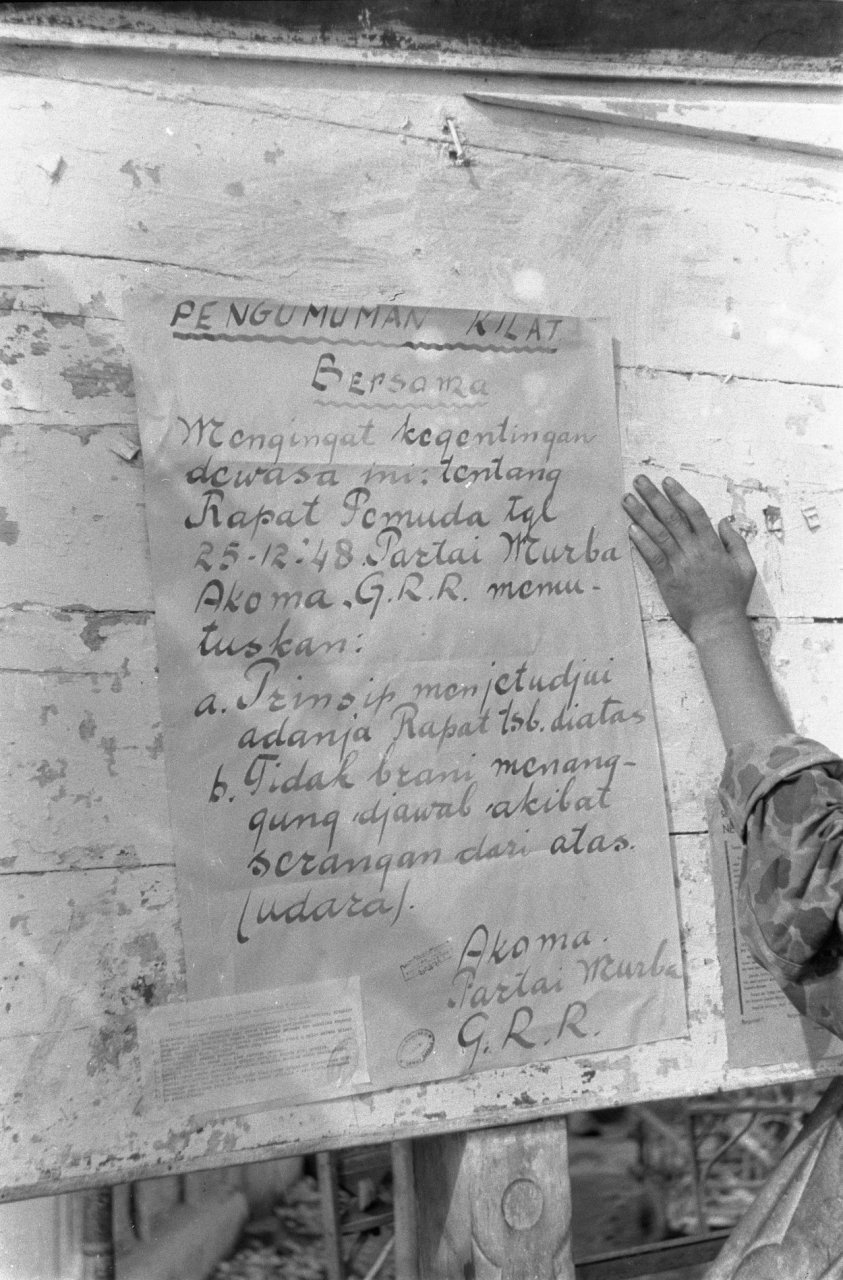 PENGUMUMAN KILAT
Bersama
Mengingat kegentingan
dewasa ini: tentang
Rapat Pemuda tgl
25-12-'48. Partai Murba
Akoma, G.R.R. memu-
tuskan:
a. Prinsip menjetudjui
adanja Rapat tsb. diatas
b. Tidak brani menang-
gung djawab akibat
serangan dari atas.
(udara).
Akoma.
Partai Murba
G.R.R.